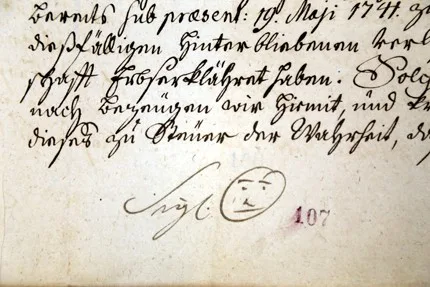 bereits sub præsent: 19. Maji 1741. zu
dießfälligen Hinterbliebenen Verl
schafft Erbserklähret haben. Solc
nach bezeugen wir hirmit, und kr
dieses zu Steüer der Wahrheit, da
Sigl.
107